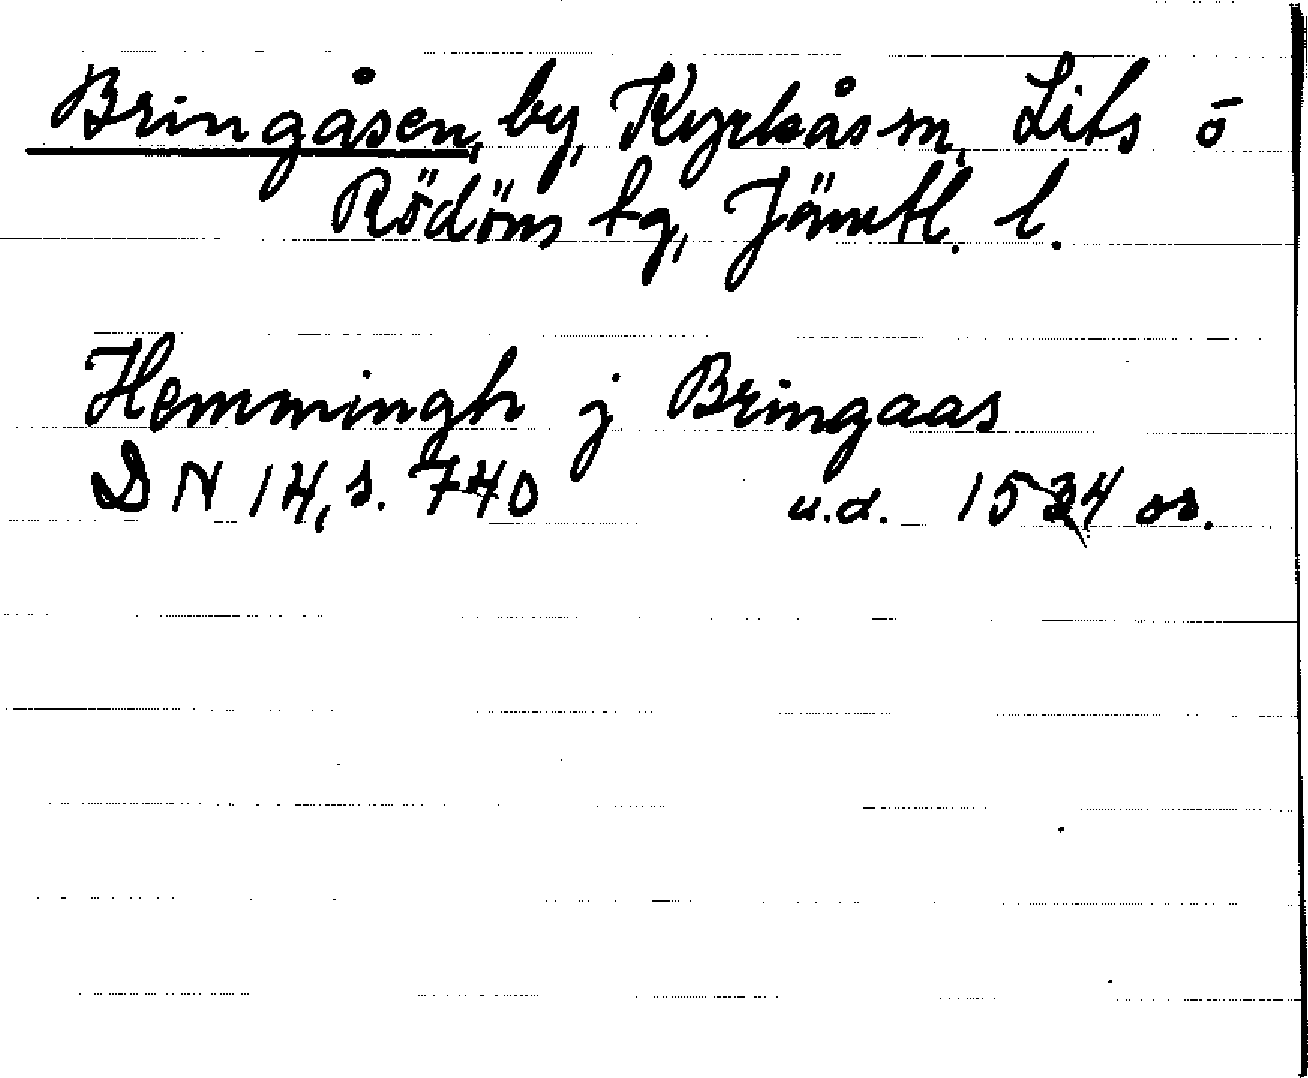 Bringåsen, by, Kyrkås sn, Lits o
Rödöns tg, Jämtl. l.
Hemmingh j Bringaas
DN 14, s. 740 u.d. 1534 or.